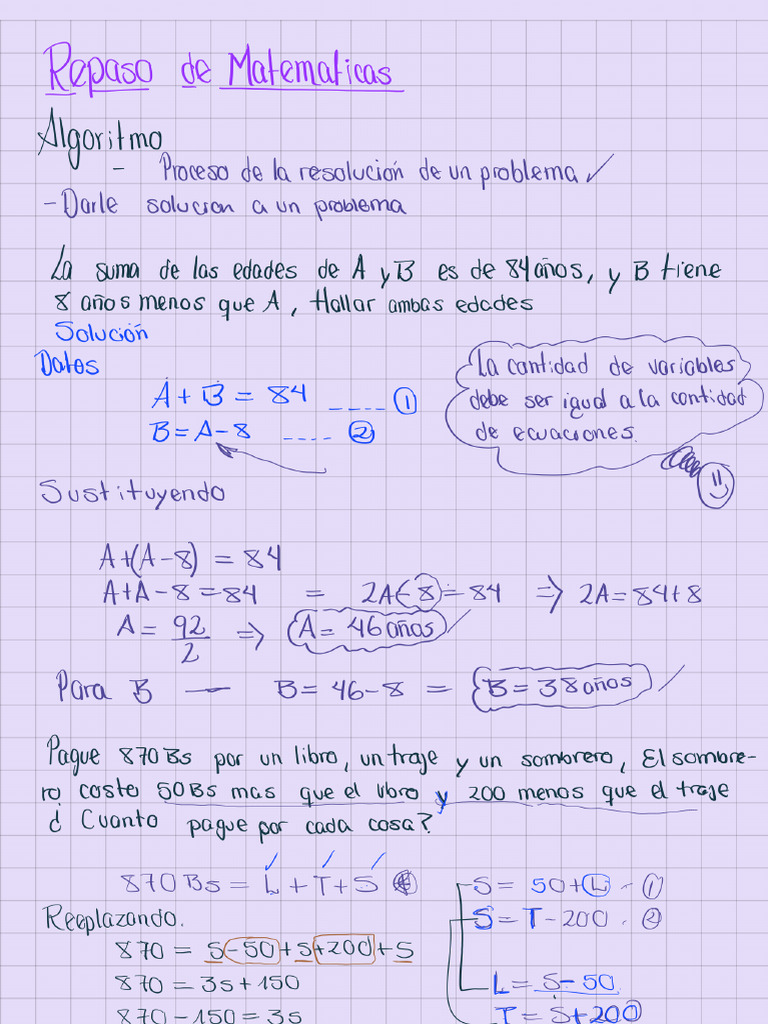 Repaso de Matematicas
Algoritmo
- Proceso de la resolución de un problema ✓
- Darle solucion a un problema
La suma de las edades de A y B es de 84 años, y B tiene
8 años menos que A, Hallar ambas edades
Solución
Datos
A + B = 84 ---- ①
B = A - 8 ---- ②
La cantidad de variables
debe ser igual a la cantidad
de ecuaciones.
Sustituyendo
A+(A-8) = 84
A+A-8 = 84 = 2A-8 = 84 => 2A = 84+8
A = 92/2 => A = 46 años ✓
Para B — B = 46-8 = B = 38 años ✓
Pague 870 Bs por un libro, un traje y un sombrero, El sombre-
ro costo 50Bs mas que el libro y 200 menos que el traje
¿ Cuanto pague por cada cosa?
870 Bs = L + T + S
S = 50+L - ①
S = T - 200 . ②
Reeplazando.
870 = S-50+S+200+S
870 = 3s+150
870-150 = 3s
L = S - 50
T = S+200